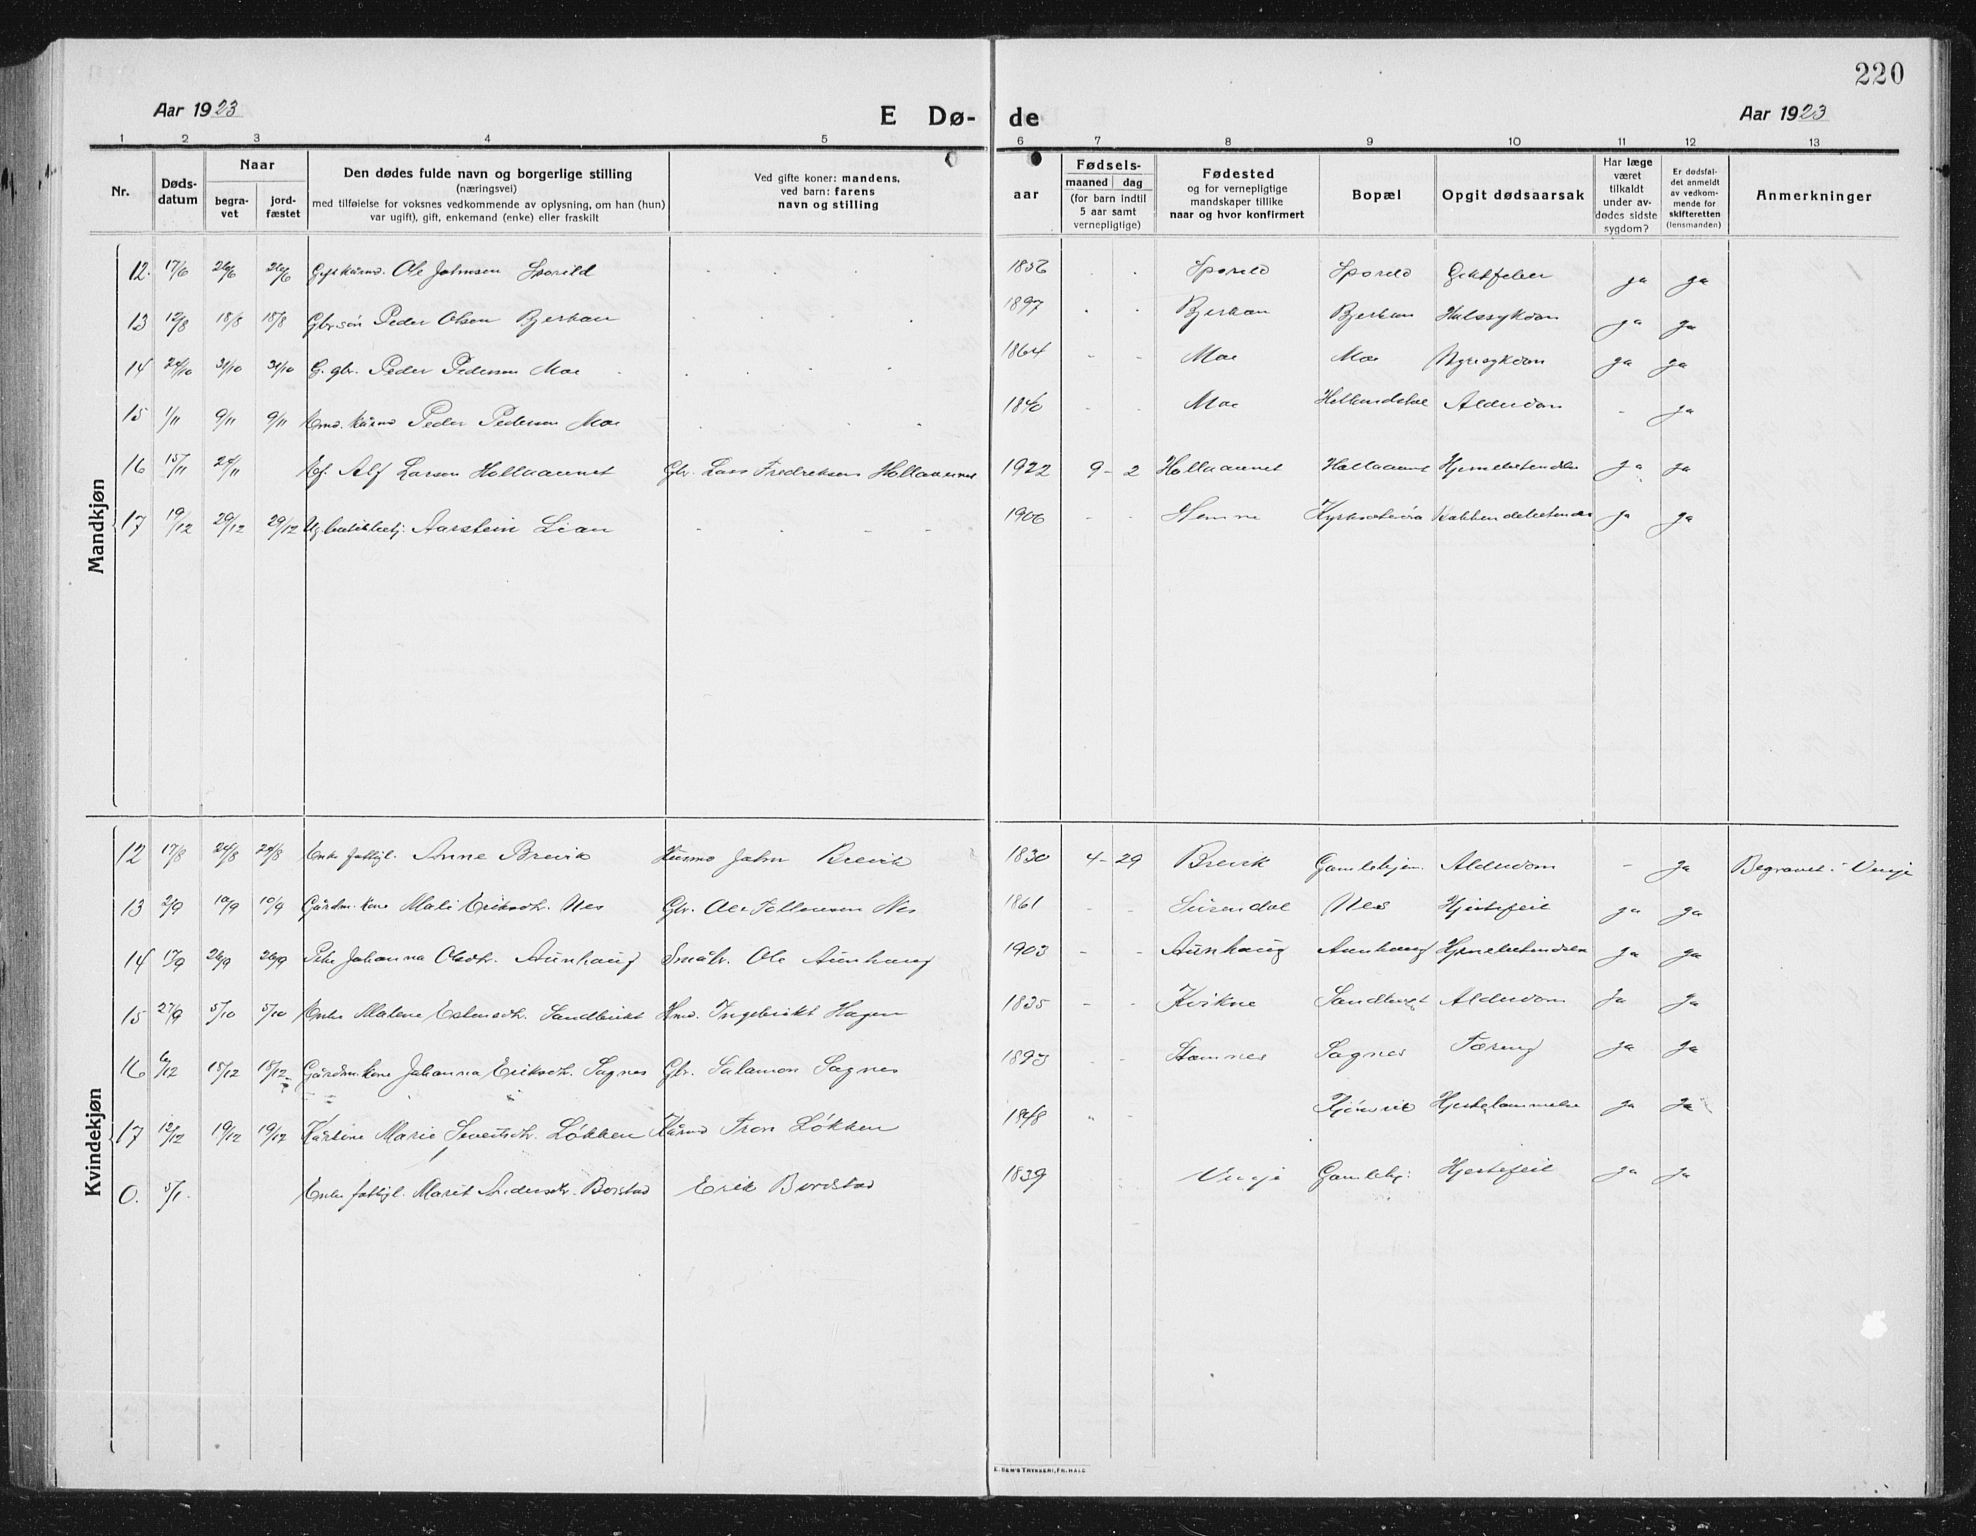 220
Aar 1923 E Dø- de Aar 1923
1 2 3 4 5 6 7 8 9 10 11 12 13
Nr.
Døds-
datum
Naar
begra-
vet
jord-
fæstet
Den dødes fulde navn og borgerlige stilling
(næringsvei)
med tilføielse for voksnes vedkommende av oplysning, om han (hun)
var ugift), gift, enkemand (enke) eller fraskilt
Ved gifte koner: mandens,
ved barn: farens
navn og stilling
aar
Fødsels-
maaned dag
(for barn indtil
5 aar samt
vernepligtige)
Fødested
og for vernepligtige
mandskaper tillike
naar og hvor konfirmert
Bopæl
Opgit dødsaarsak
Har læge
været
tilkaldt
under av-
dødes sidste
sygdom?
Er dødsfal-
det anmeldt
av vedkom-
mende for
skifteretten
(lensmanden)
Anmerkninger
Mandkjøn
12. 17/6 26/6 26/6 Ole Johnsen 1856 ja ja
13 12/8 18/8 18/8 Gbr.søn Peder Olsen Bjerkan 1897 Bjerkan Bjerkan Halssykdom ja ja
14 24/10 31/10 31/10 G. gbr. Peder Pedersen Moe 1864 - - Moe Moe Nyresykdom ja ja
15 1/11 9/11 9/11 Peder Pedersen Moe 1840 - - Moe Alderdom - ja
16 15/11 24/11 Alf Larsen Hollaaunet Gbr. Lars Fredriksen Hollaaunet 1922 9 - 2 Hollaaunet Hollaaunet ja ja
17 19/12 29/12 29/12 Aarstein Lian 1906 - - Hemne ja ja
Kvindekjøn
12 17/8 24/8 24/8 Enke fattigl. Anne Brevik Husmd John Brevik 1830 4 - 29 Brevik Gamlehjem. Alderdom - ja Begravet i Vinje
13 2/9 10/9 10/9 Gårdm. kone Mali Eriksdtr. Nes Gbr. Ole Tellevsen Nes 1861 - - Surendal Nes Hjertefeil ja ja
14 17/9 26/9 26/9 Pike Johanna Olsdtr. Aunhaug Småbr. Ole Aunhaug 1903 - - Aunhaug Aunhaug ja ja
15 27/9 5/10 5/10 Enke Malene Estensdtr. Ingebrikt Hagen 1835 - - Kvikne Alderdom ja ja
16 6/12 18/12 18/12 Gårdm. kone Johanna Eriksdtr. Sagnes Gbr. Salamon Sagnes 1893 - - Stamnes Sagnes Tæring ja ja
17 12/12 19/12 19/12 Marie Sivertsdtr. Løkken Tron Løkken 1848 Hjertelammelse ja ja
0. 5/1. Enke fattigl. Marit Andersdtr. Borstad Erik Bordstad 1839 Vinje Gamlehj: Hjertefeil ja ja
E. SEM'S TRYKKERI, FR. HALD